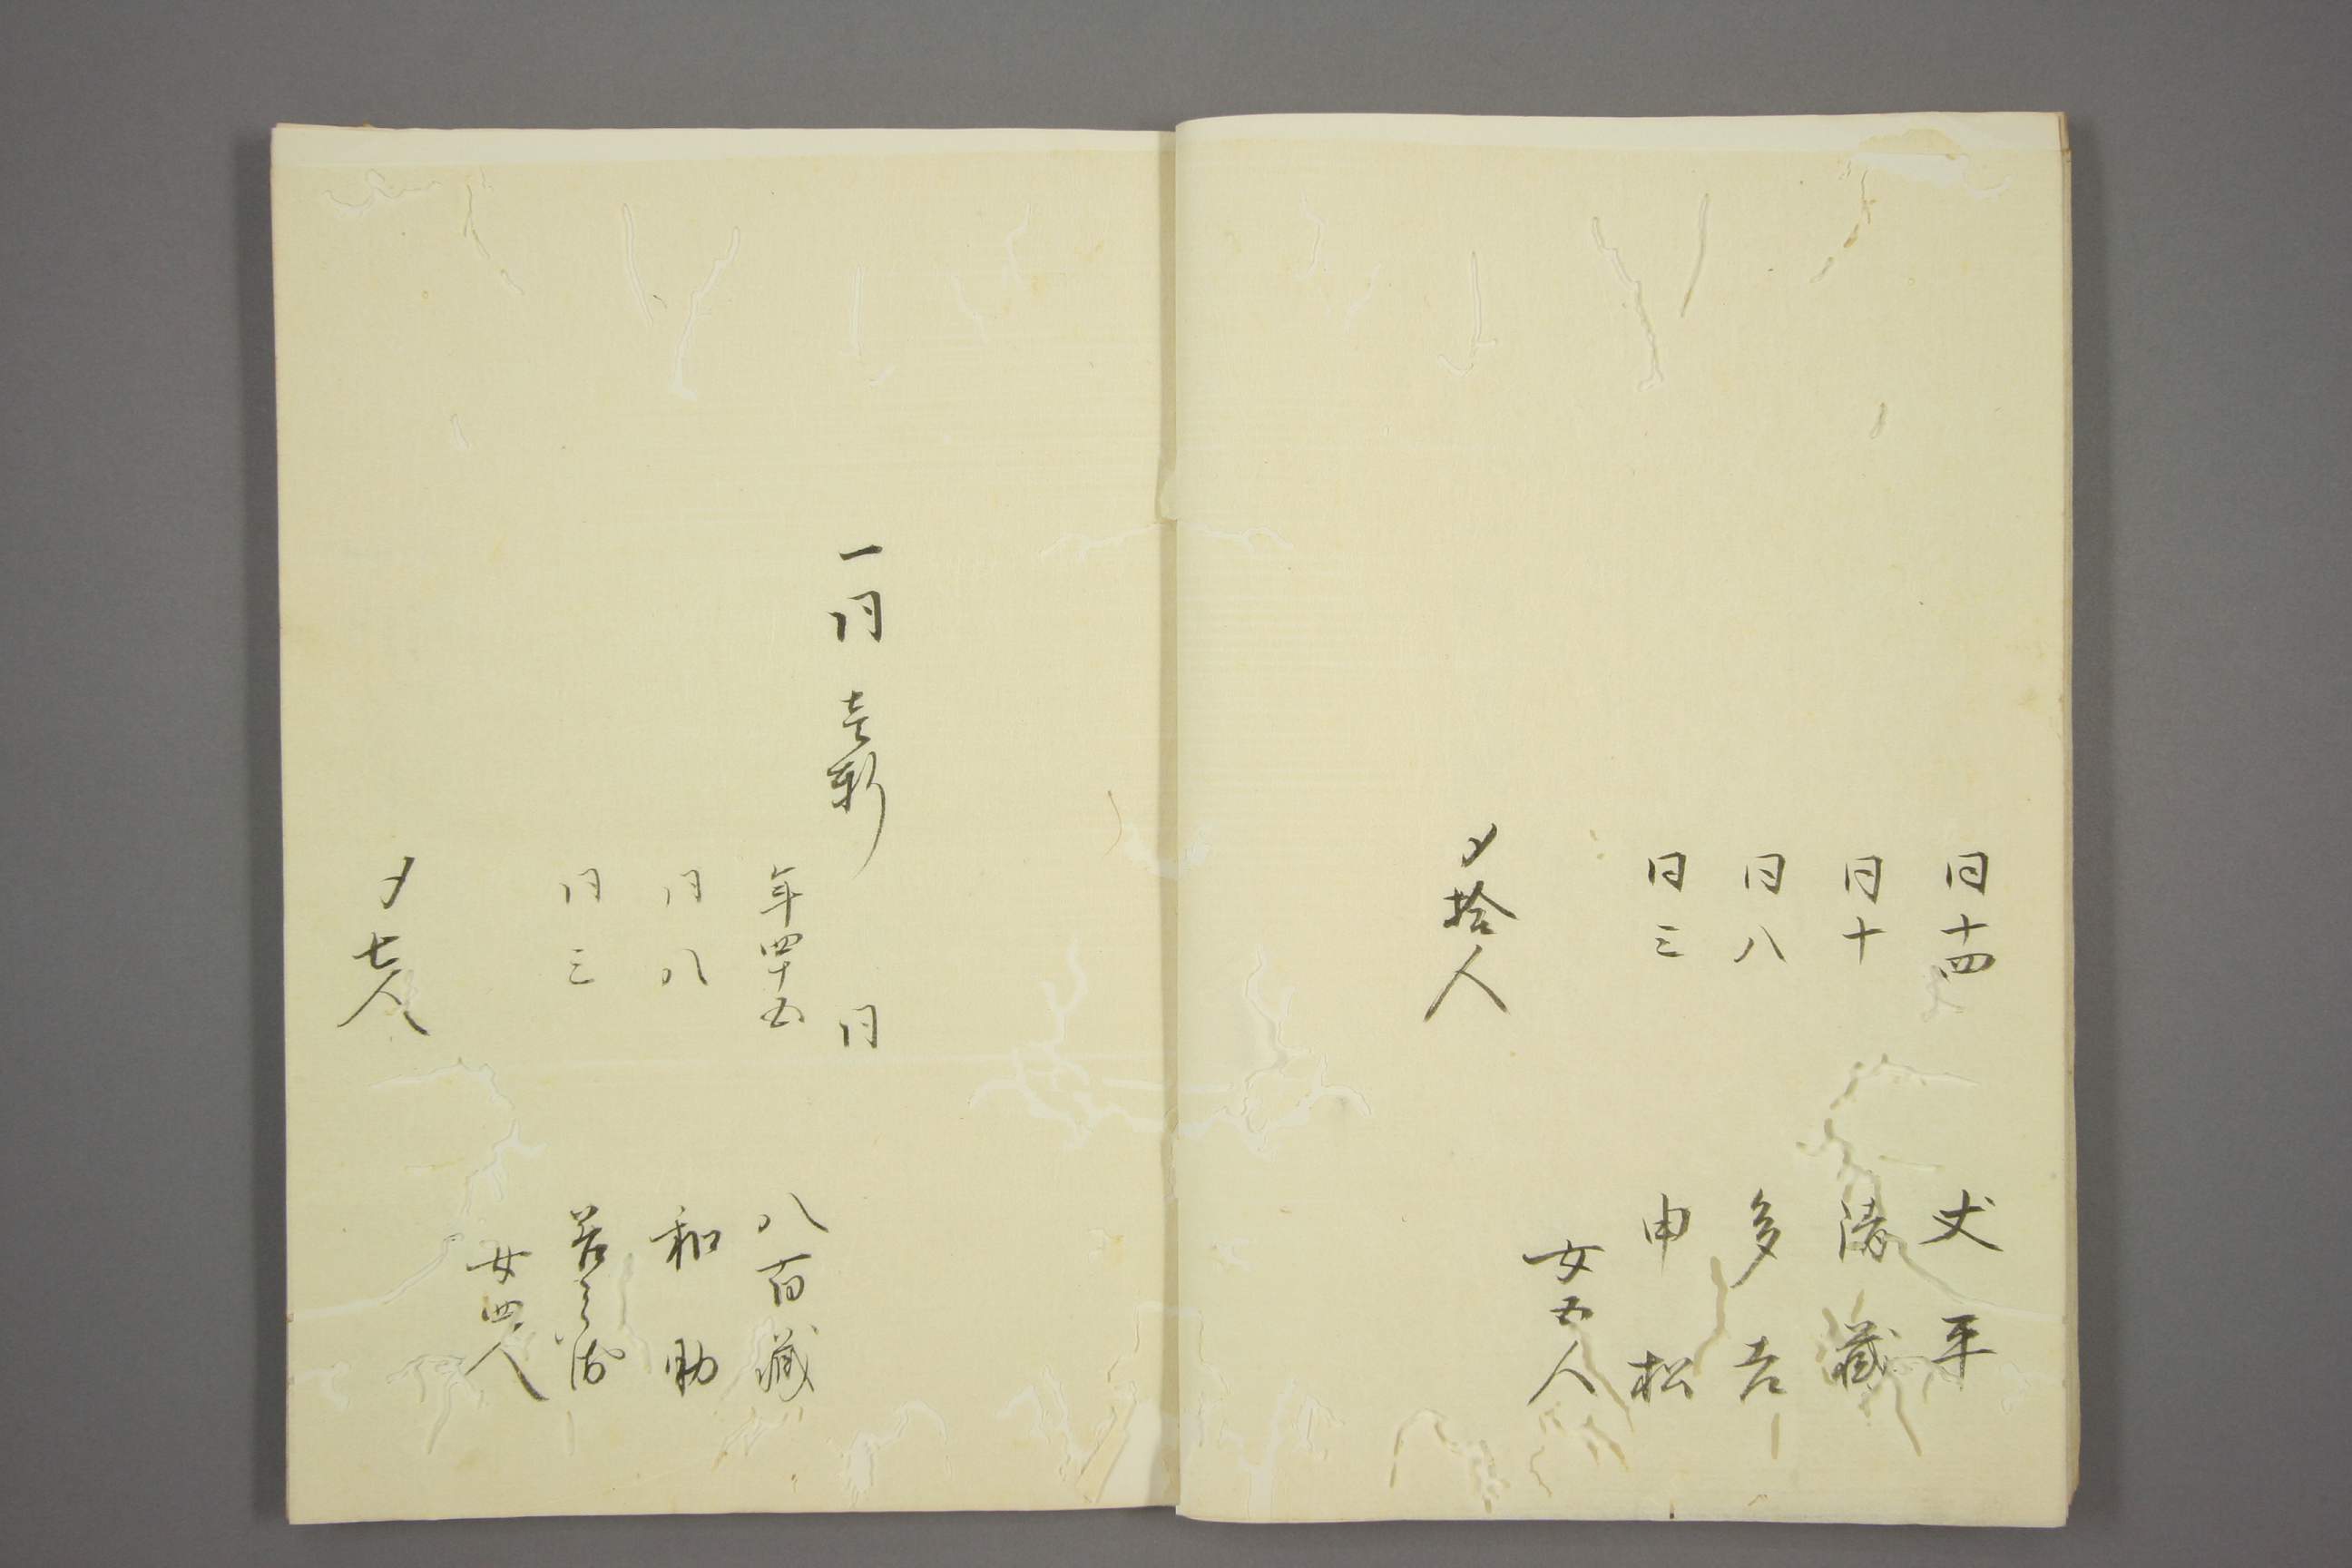 同十四 丈平
同十 藏
同八 多吉
同三 申松
女五人
〆拾人
一同壱軒 同
年四十五 八百藏
同八 和助
同三
女四人
〆七人